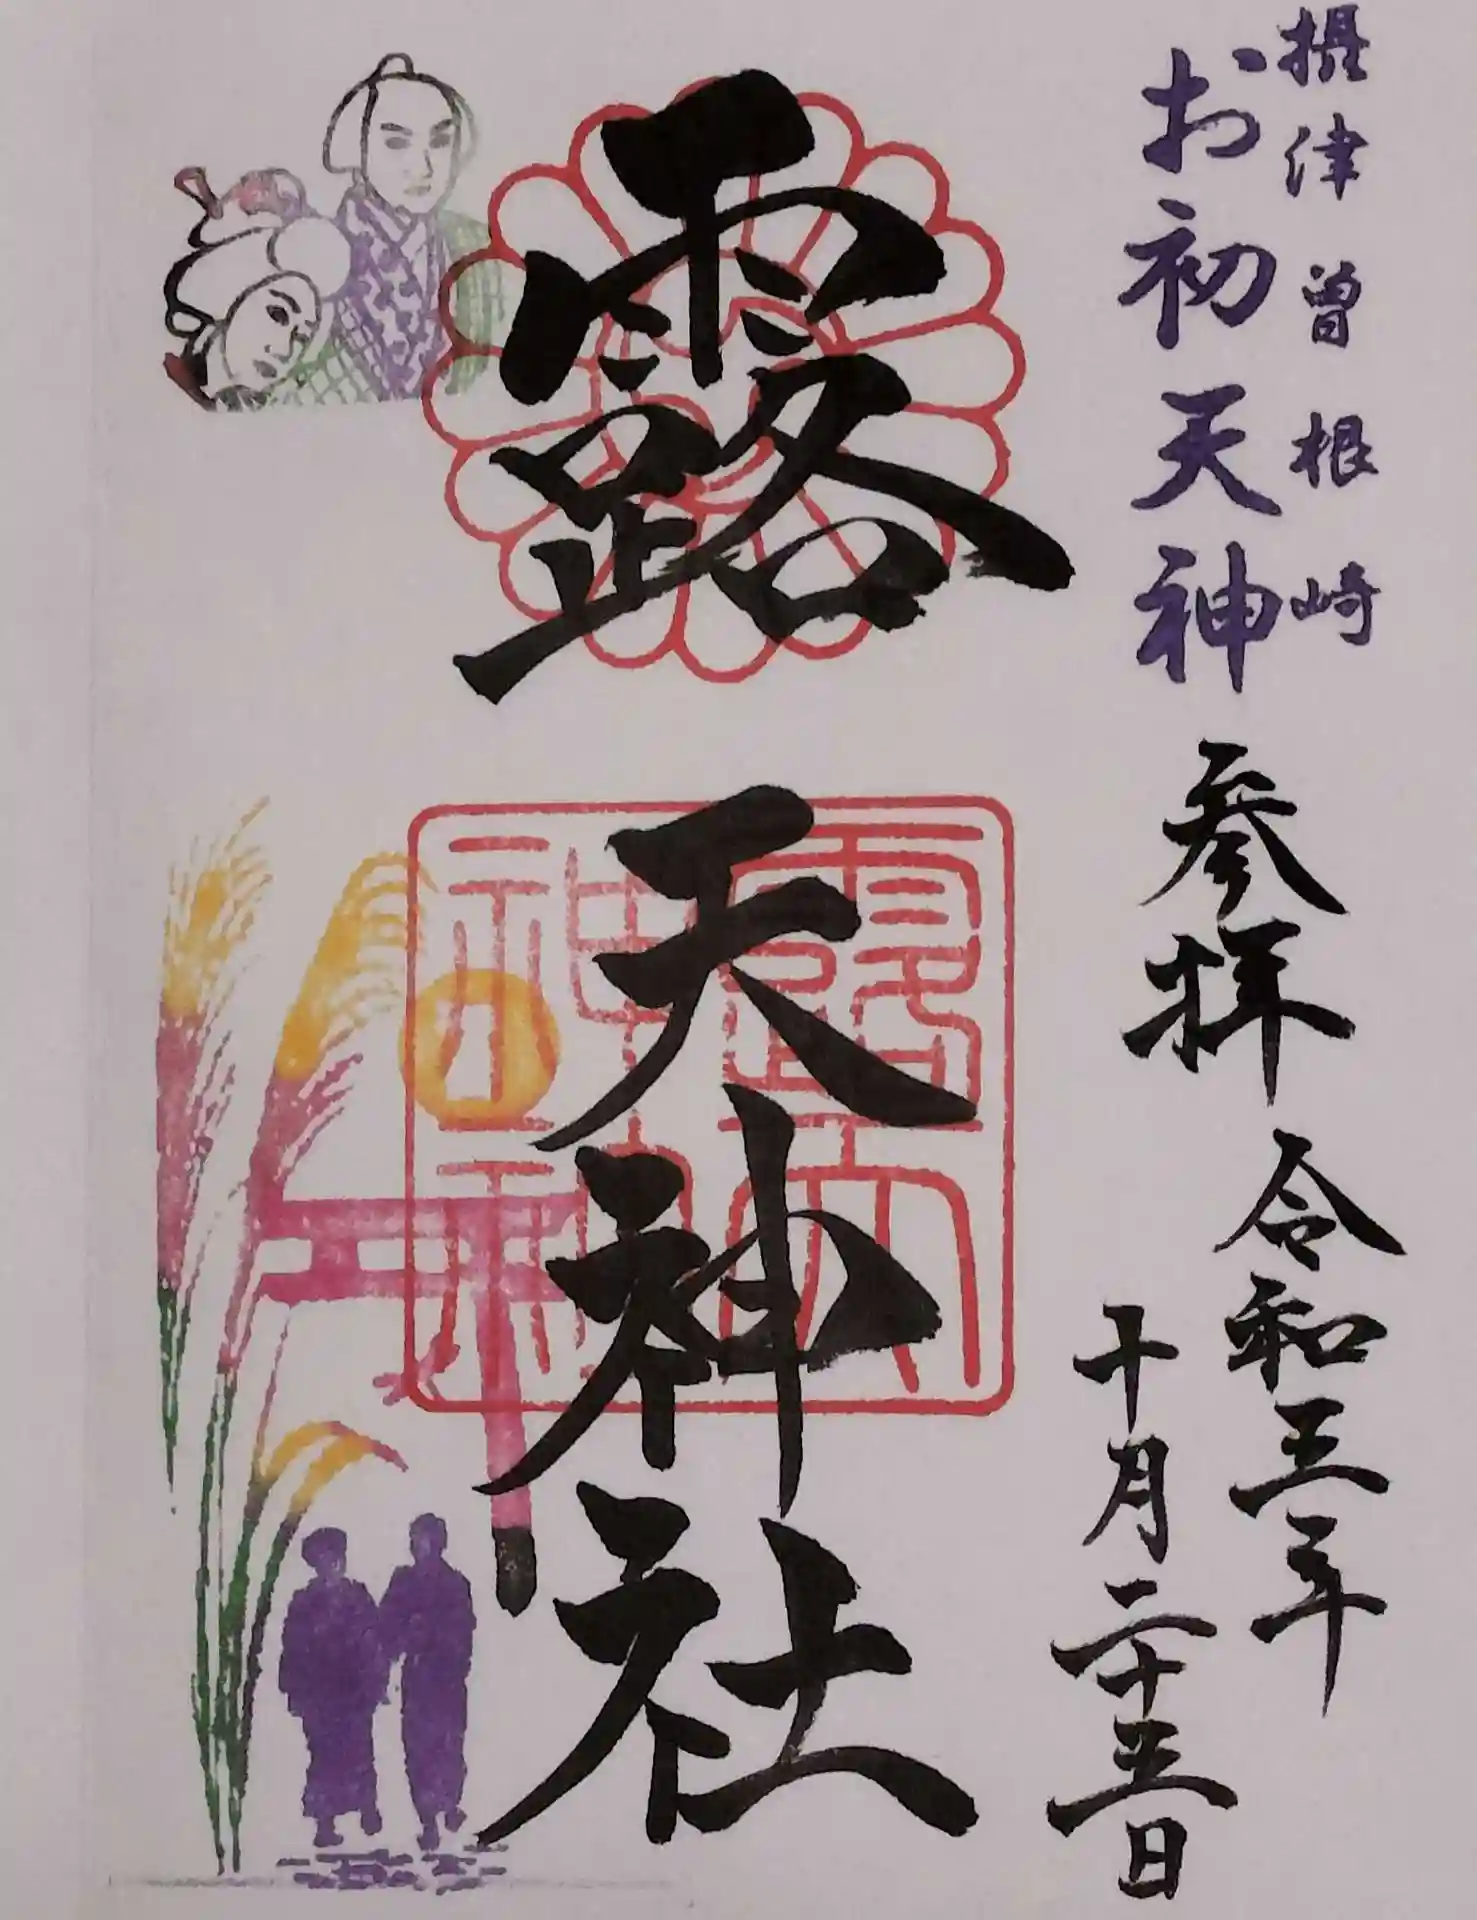 摂津曽根崎
お初天神
参拝
令和三年
十月二十五日
露天神社
露天
神社